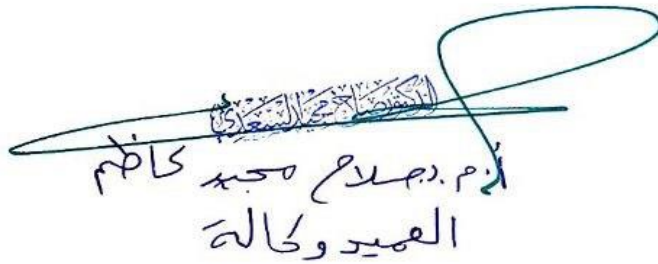 الدكتور صلاح مجيد السعدي
أ.م.د. صلاح مجيد كاظم
العميد وكالة